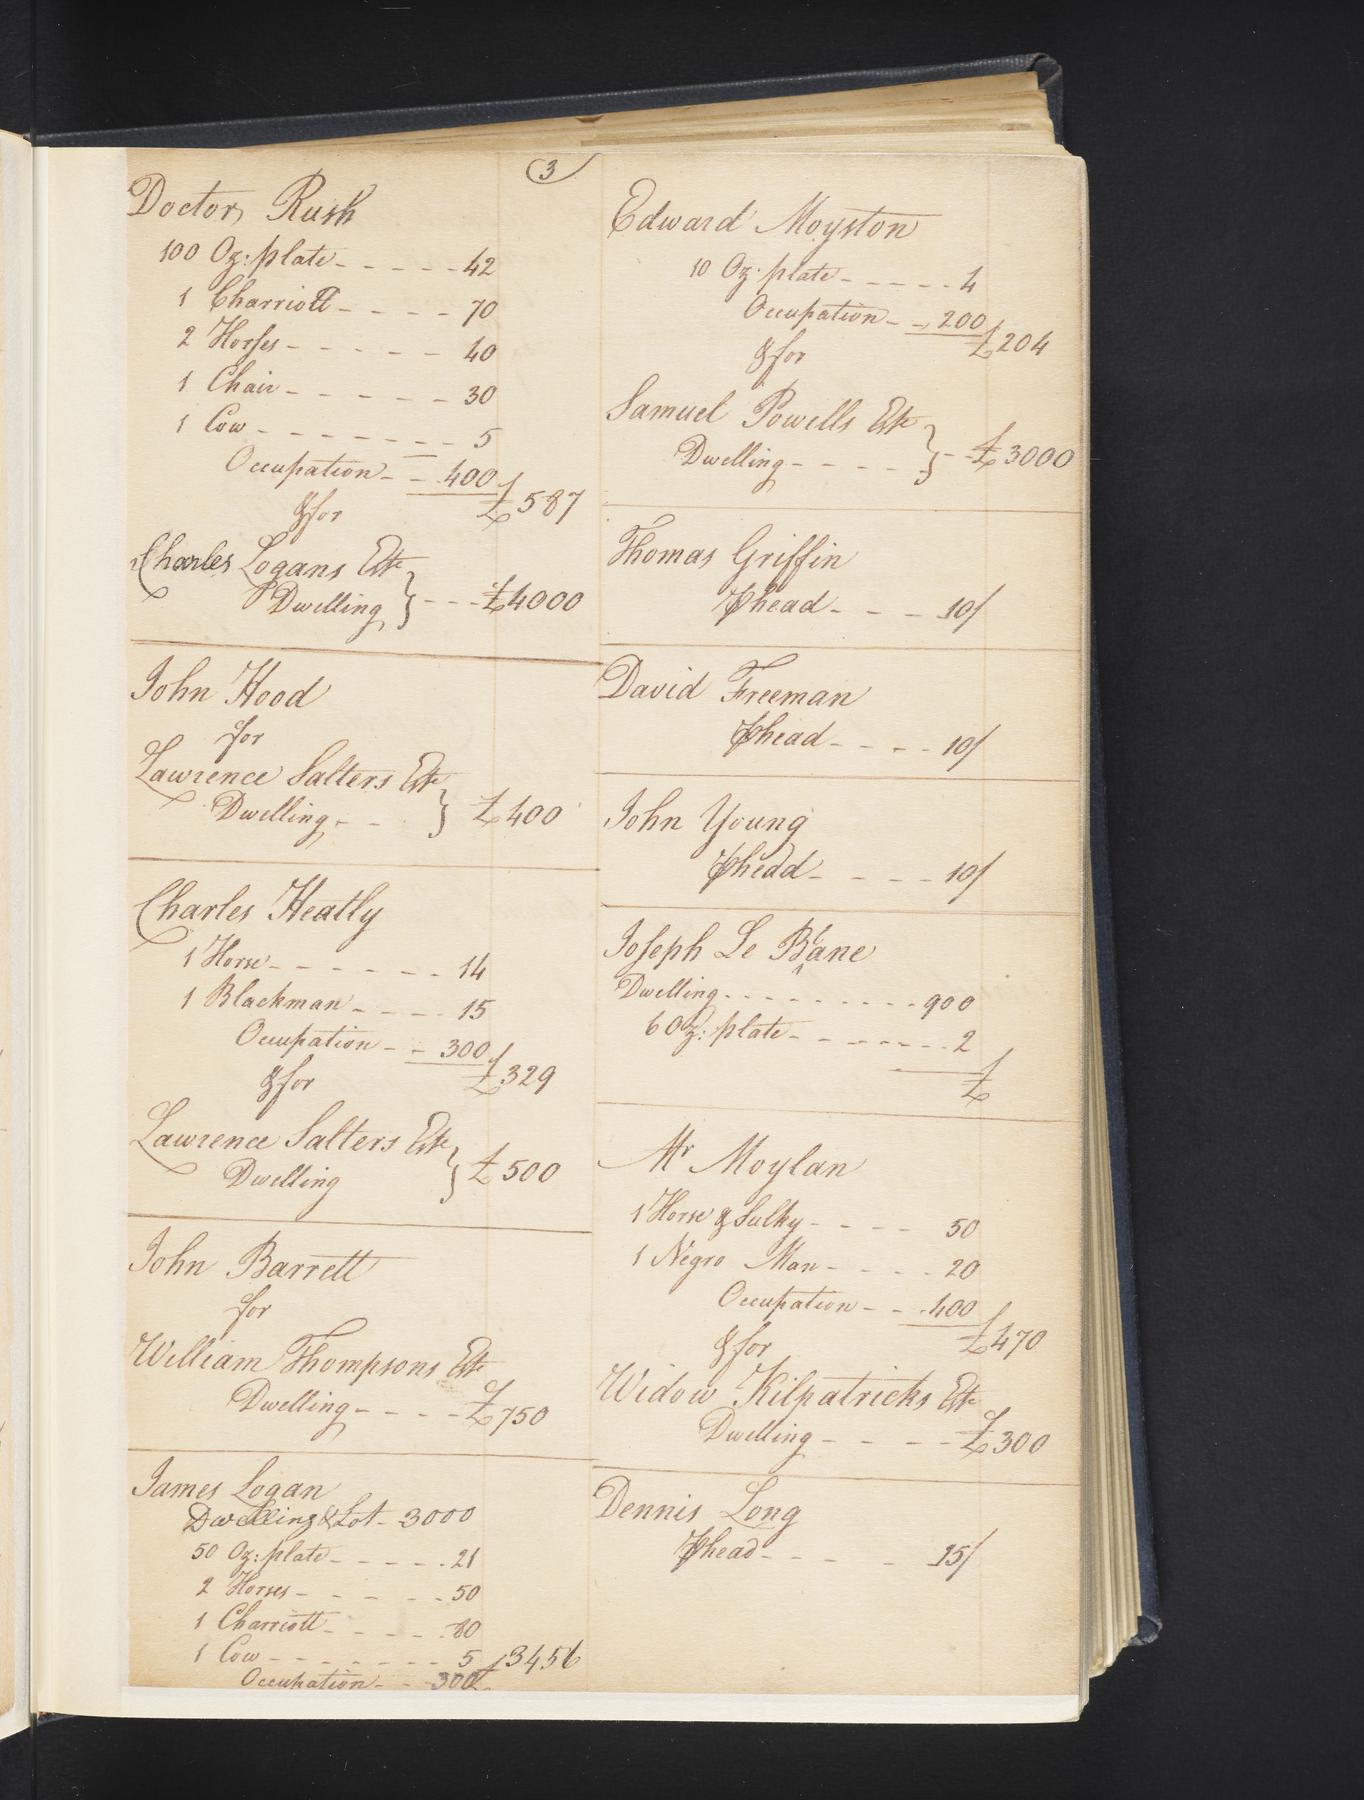 3
Doctor Rush
100 Oz: plate - - - - - 42
1 Charriott - - - - 70
2 Horses - - - - - 40
1 Chair - - - - - - 30
1 Cow - - - - - - - - 5
Occupation - - 400
£587
& for
Charles Logans Este
Dwelling } - - - £4000
John Hood
for
Lawrence Salters Este
Dwelling - - } £400
Charles Heatly
1 Horse - - - - - - - 14
1 Blackman - - - - 15
Occupation - - 300
£329
& for
Lawrence Salters Este
Dwelling } £500
John Barrett
for
William Thompsons Este
Dwelling - - - - £750
James Logan
Dwelling & Lot - 3000
50 Oz: plate - - - - - 21
2 Horses - - - - - 50
1 Charriott - - - - - 80
1 Cow - - - - - - - - 5
Occupation - - 300
£3456
Edward Moyston
10 Oz: plate - - - - - 4
Occupation - - 200
£204
& for
Samuel Powells Este
Dwelling - - - - } - - £3000
Thomas Griffin
⅌head - - - 10/
David Freeman
⅌head - - - - 10/
John Young
⅌head - - - - 10/
Joseph Le Blane
Dwelling - - - - - - - - - 900
6 Oz: plate - - - - - - - 2
£
Mr Moylan
1 Horse & Sulky - - - - 50
1 Negro Man - - - - - 20
Occupation - - 400
£470
& for
Widow Kilpatricks Este
Dwelling - - - - £300
Dennis Long
⅌head - - - - 15/